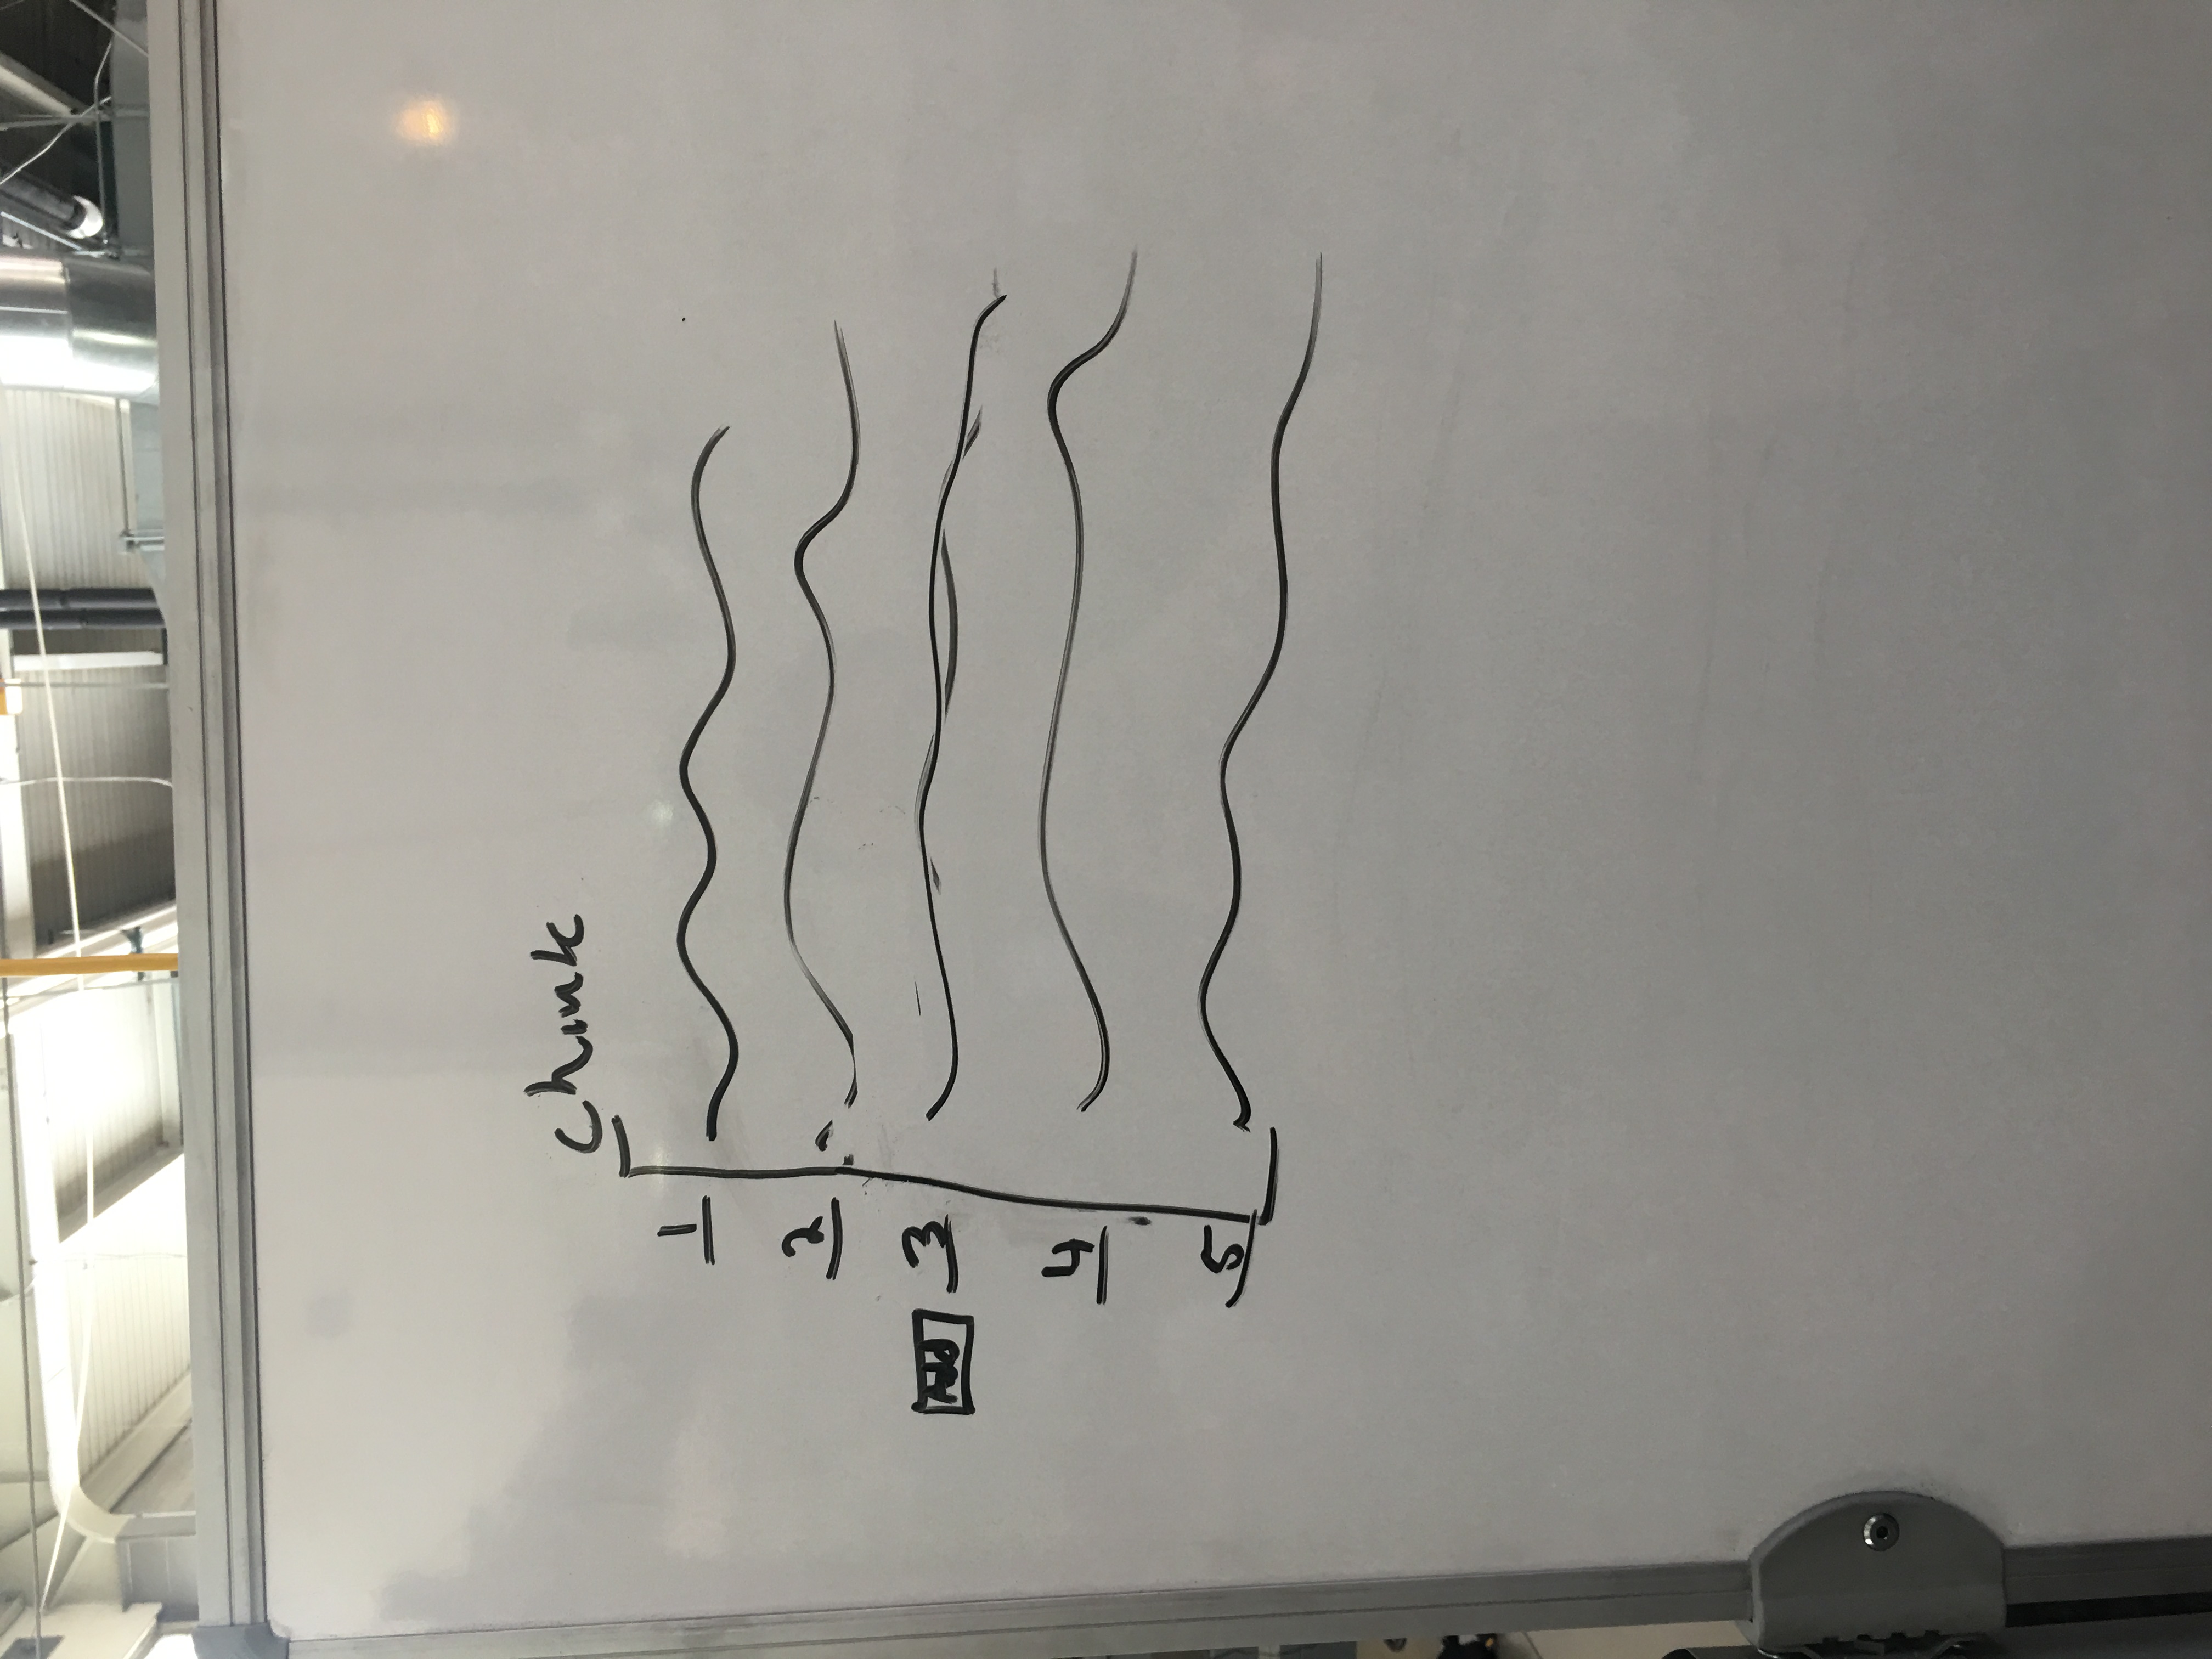 chunk
1
2
Add 3
4
5